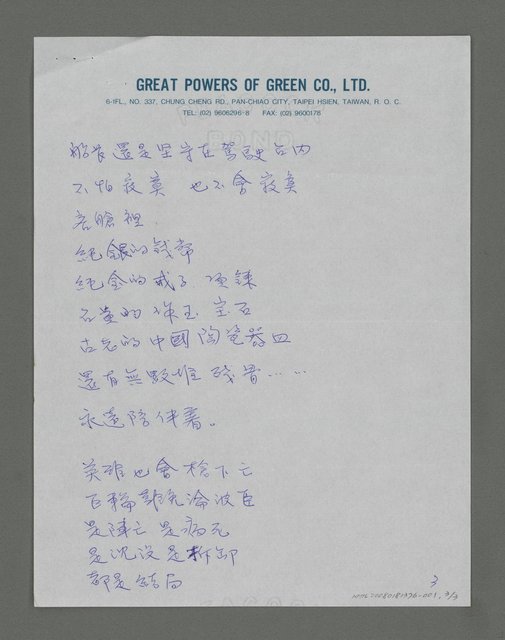 GREAT POWERS OF GREEN CO., LTD.
6-1FL., NO. 337, CHUNG CHENG RD., PAN-CHIAO CITY, TAIPEI HSIEN, TAIWAN, R. O. C.
TEL: (02) 9606296-8 FAX: (02) 9600178
船長還是堅守在駕駛台內
不怕寂寞 也不會寂寞
客艙裡
純銀的錢幣
純金的戒子 項鍊
名貴的珠玉 宝石
古老的中國陶瓷器皿
還有無數堆殘骨……
永遠陪伴著。
英雄也會槍下亡
巨輪難免淪波臣
是陣亡 是病死
是沉沒 是拆卸
都是結局
3